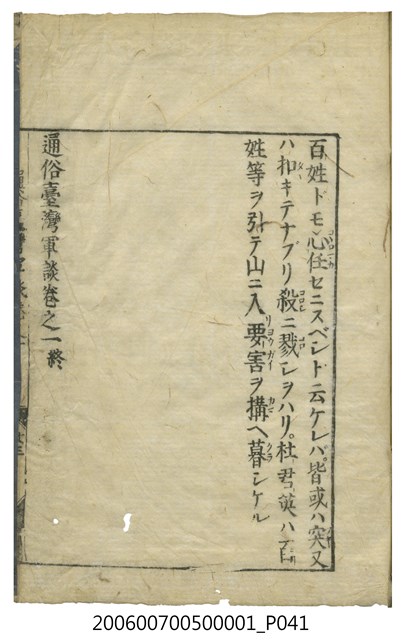 百姓ドモ心任セニスベシト云ケレバ。皆或ハ突又
ハ扣キテナブリ殺ニ戮シヲハリ。杜君英ハ百
姓等ヲ引テ山ニ入要害ヲ搆ヘ暮シケル
通俗臺灣軍談卷之一終
200600700500001_P041